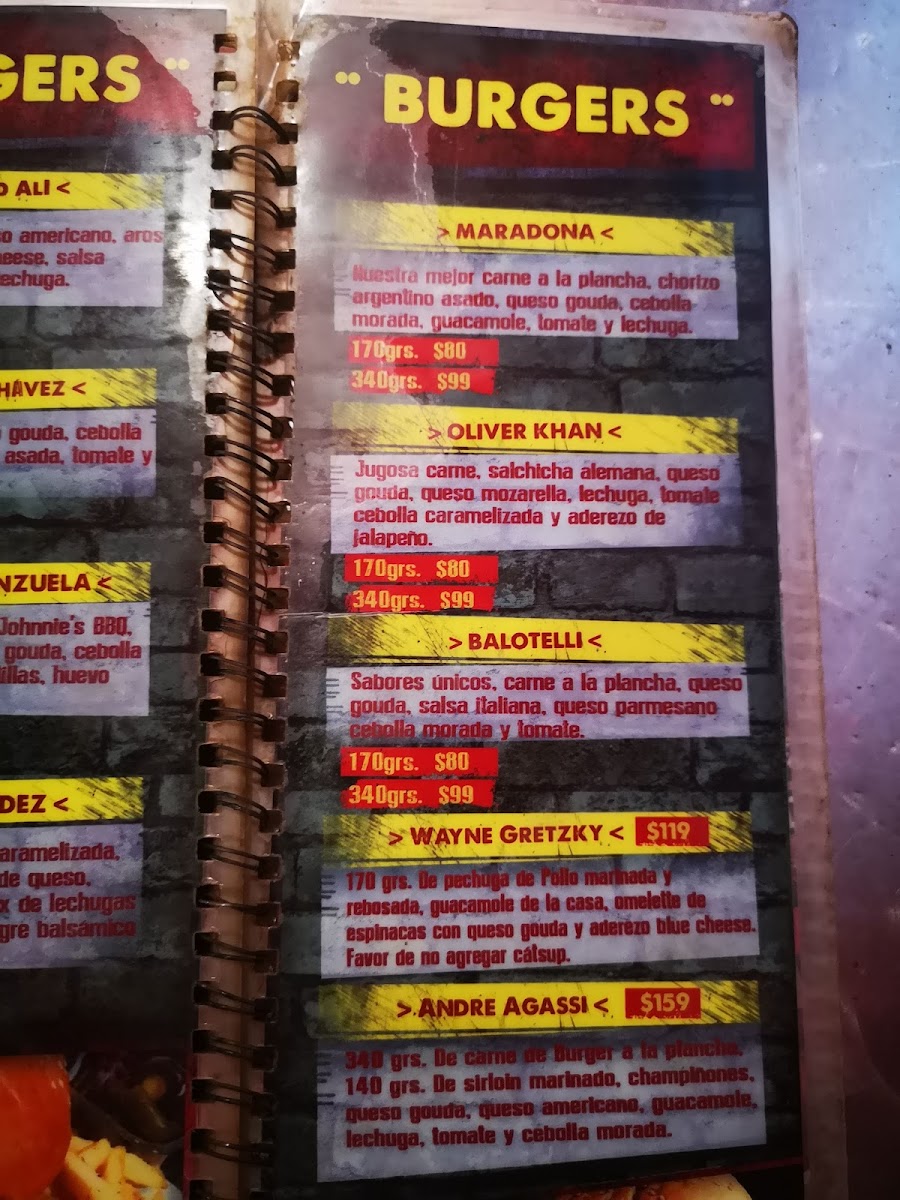 GERS "
ALI <
americano, aros
salsa
HAVEZ <
gouda, cebolla
asada, tomate y
NZUELA <
Johnnie's BBQ,
gouda, cebolla
huevo
DEZ <
aramelizada,
de queso,
x de lechugas
gre balsámico
" BURGERS "
> MARADONA <
Nuestra mejor carne a la plancha, chorizo
argentino asado, queso gouda, cebolla
morada, guacamole, tomate y lechuga.
170grs. $80
340grs. $99
> OLIVER KHAN <
Jugosa carne, salchicha alemana, queso
gouda, queso mozarella, lechuga, tomate
cebolla caramelizada y aderezo de
jalapeño.
170grs. $80
340grs. $99
> BALOTELLI <
Sabores únicos, carne a la plancha, queso
gouda, salsa italiana, queso parmesano
cebolla morada y tomate.
170grs. $80
340grs. $99
> WAYNE GRETZKY < $119
170 grs. De pechuga de Pollo marinada y
rebosada, guacamole de la casa, omelette de
espinacas con queso gouda y aderezo blue cheese.
Favor de no agregar cátsup.
> ANDRE AGASSI < $159
340 grs. De carne de Burger a la plancha,
140 grs. De sirloin marinado, champiñones,
queso gouda, queso americano, guacamole,
lechuga, tomate y cebolla morada.